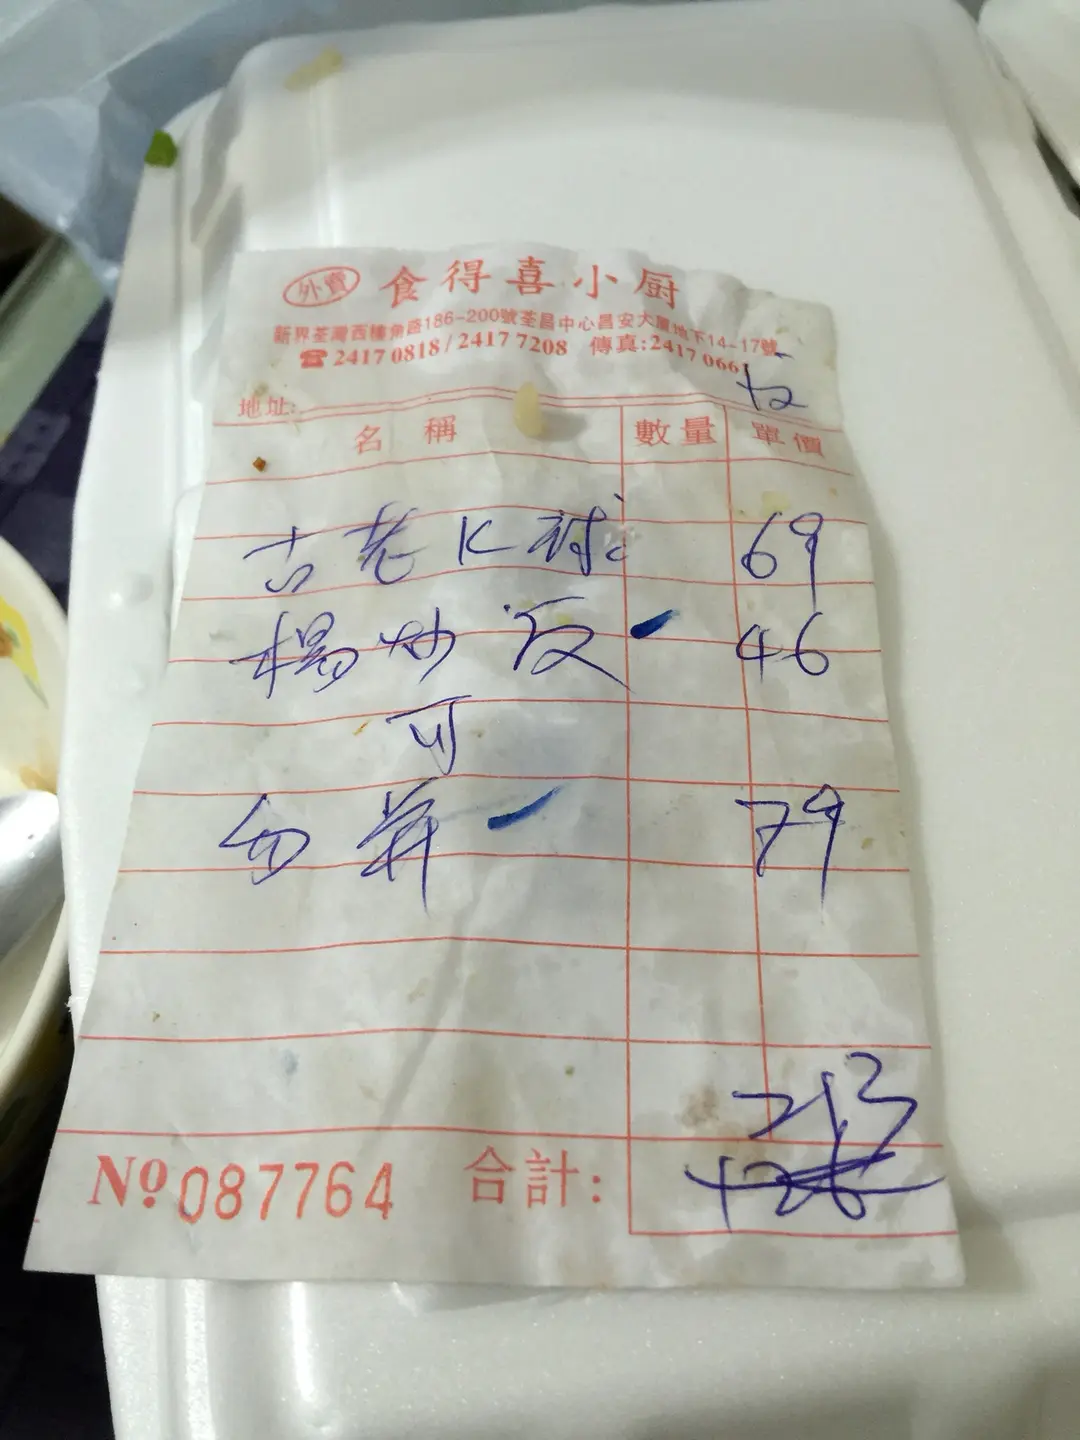 外賣 食得喜小厨
新界荃灣西樓角路186-200號荃昌中心昌安大厦地下14-17號
☎ 2417 0818 / 2417 7208 傳真:2417 0661
地址:
名稱 數量 單價
古老K球 69
楊炒反 46
79
213
No 087764 合計: